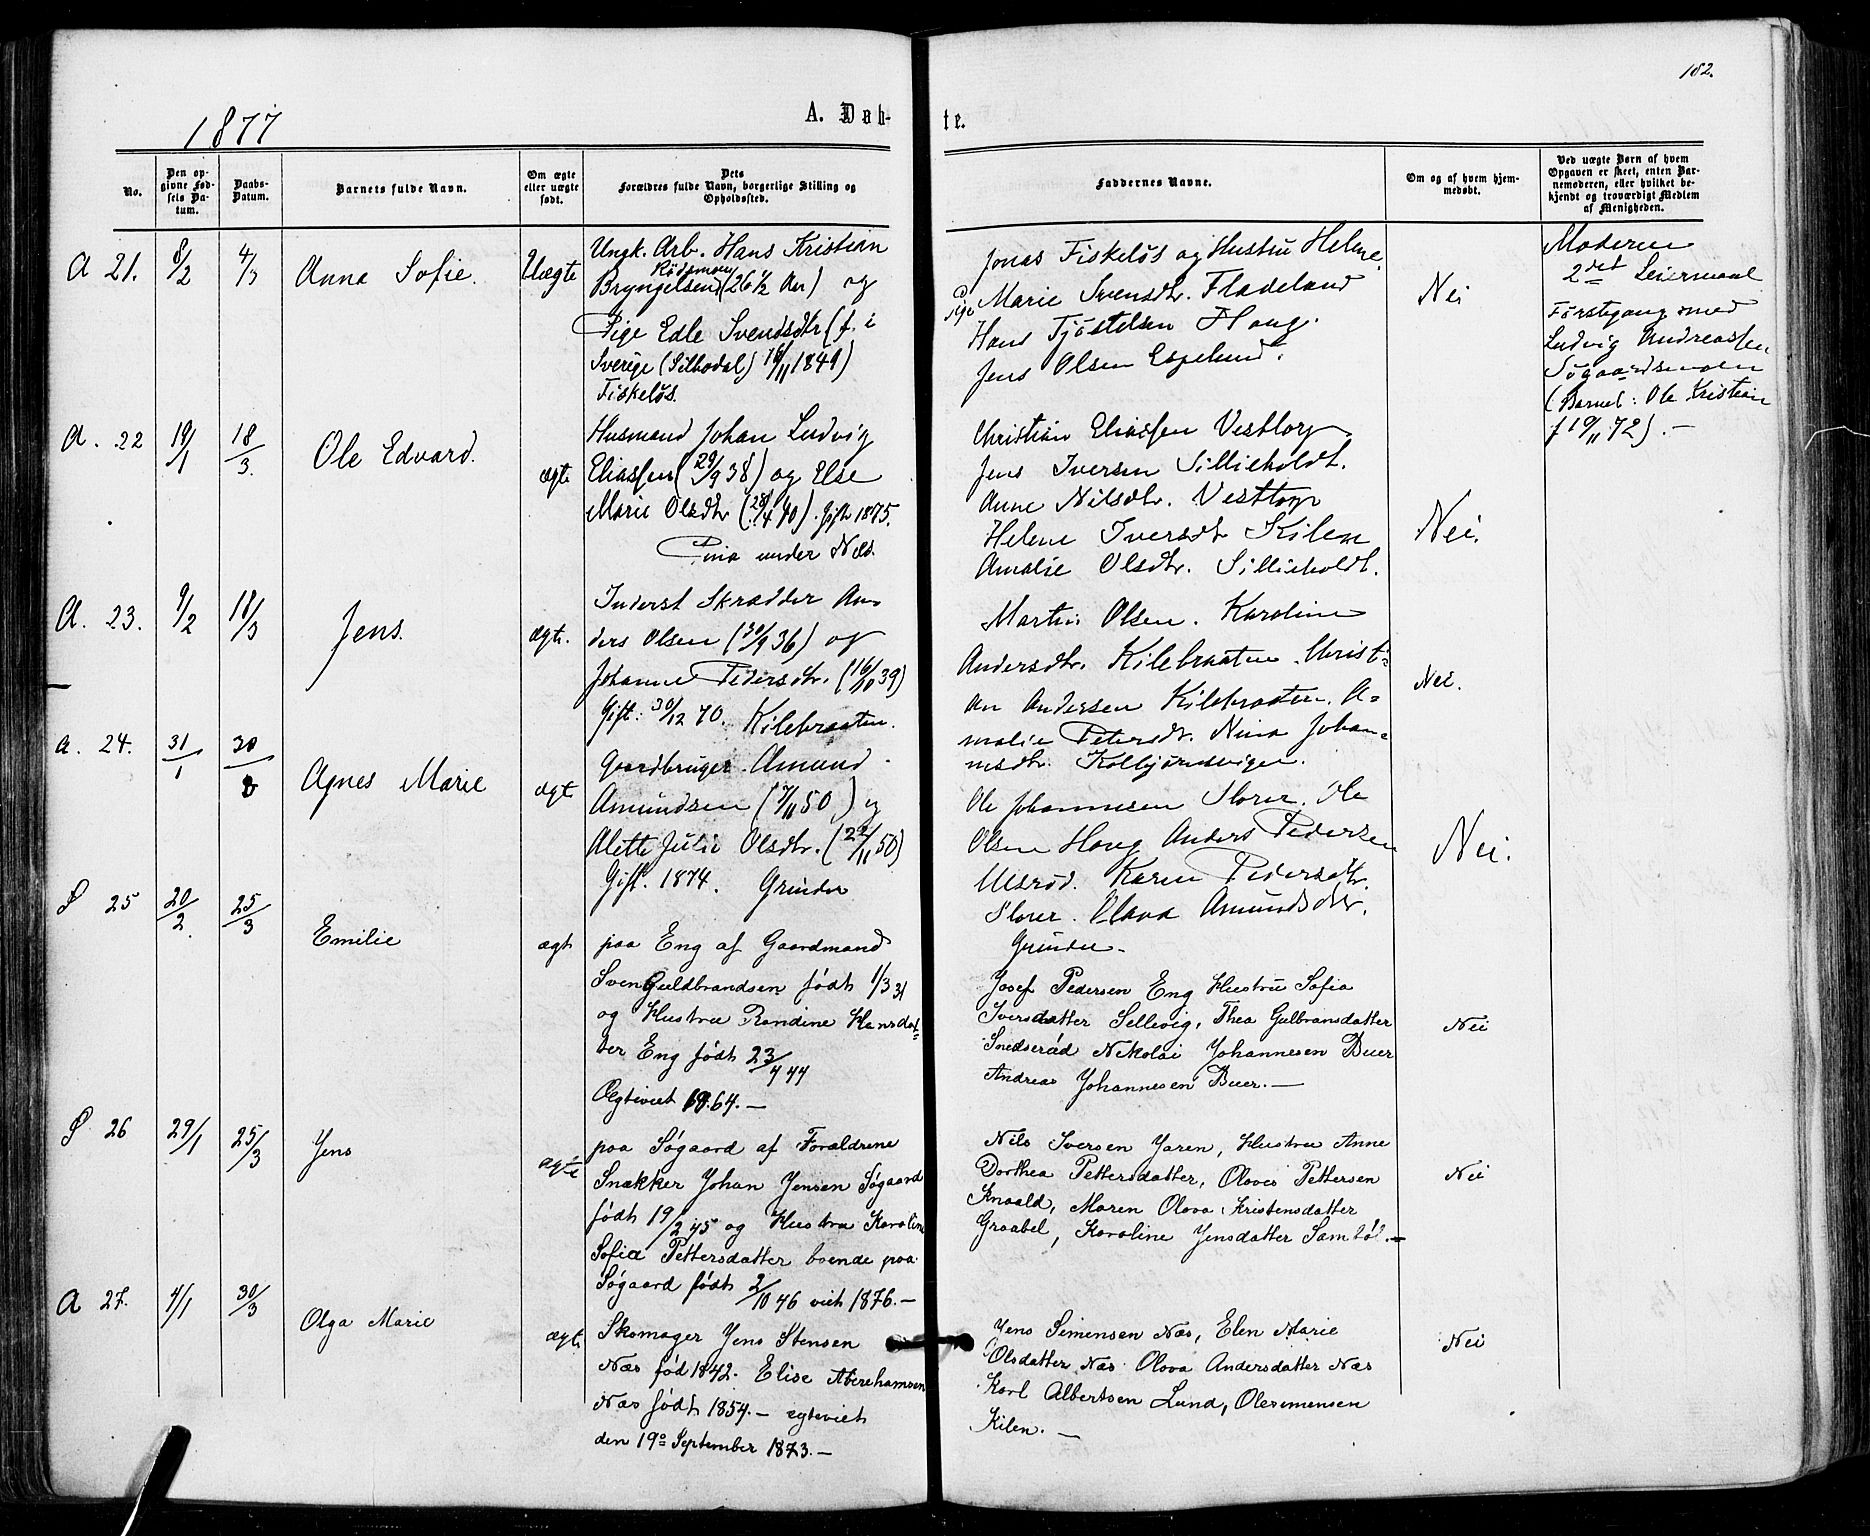 182.
1877
A. Døb-
te.
No.
Den op-
givne Fød-
sels Da-
tum.
Daabs-
Datum.
Barnets fulde Navn.
Om ægte
eller uægte
født.
Dets
Forældres fulde Navn, borgerlige Stilling og
Opholdssted.
Faddernes Navne.
Om og af hvem hjem-
medøbt.
Ved uægte Børn af hvem
Opgaven er skeet, enten Bar-
nemoderen, eller hvilket be-
kjendt og troværdigt Medlem
af Menigheden.
A 21.
8/2
4/3
Anna Sofie.
Uægte
Ungk. Arb. Hans Kristian
Bryngelsen (26 1/2 Aar) og
Pige Edle Svendsdtr (f. i
Sverige (Silbodal) 16/11 1849)
Fiskeløs.
Jonas Fiskeløs og Hustru Helene.
Pige Marie Svensdtr. Fladeland
Hans Tjøstelsen Houg.
Jens Olsen Espelund.
Nei
Moderen
2det Leiermaal
Førstegang med
Ludvig Andreassen
Søgaardseneien
(Barnet: Ole Kristian
f 19/11 72). —
A. 22
19/1
18/3.
Ole Edvard.
ægte
Husmand Johan Ludvig
Eliassen (29/9 38) og Else
Marie Olsdtr (28/4 40). Gift 1875.
Pina under Næs.
Christian Eliassen Vesttorp
Jens Iversen Sillieholdt.
Anne Nilsdtr. Vesttorp
Helene Iversdtr Kilen
Amalie Olsdtr. Sillieholdt.
Nei.
A. 23.
9/2
18/3
Jens.
ægte.
Inderst Skrædder An-
ders Olsen (30/9 36) og
Johanne Pedersdtr. (16/10 39)
Gift: 30/12 70. Kilebraaten.
Martin Olsen. Karoline
Andersdtr. Kilebraaten. Christi-
an Andersen Kilebraaten. A-
malie Petersdtr. Nina Johan-
nesdtr. Kolbjørnsvigen.
Nei.
A. 24.
31/1
Agnes Marie
ægte
Gaardbruger Amund
Amundsen (7/11 50) og
Alette Julie Olsdtr. (22/11 50)
Gift. 1874. Grinder
Ole Johannesen Slorer. Ole
Olsen Houg Anders Pedersen
Ulsrød. Karen Pedersdtr.
Slorer. Olava Amundsdtr.
Grinder -
Nei.
S 25
20/2.
25/3
Emilie
ægte
paa Eng af Gaardmand
Sven Guldbrandsen født 1/3 31
og Hustru Randine Hansdat-
ter Eng født 23/4 44
Ægteviet 1864. —
Josef Pedersen Eng Hustru Sofia
Iversdatter Sellevig, Thea Gulbransdatter
Snedserød Nekolai Johannesen Buer
Andreas Johannesen Buer. —
Nei
S 26
29/1
25/3
Jens
ægte
paa Søgaard af Forældrene
Snækker Johan Jensen Søgaard
født 19/2 45 og Hustru Karoline
Sofia Pettersdatter boende paa
Søgaard født 2/10 46 viet 1876. —
Nils Iversen Jaren, Hustru Anne
Dorthea Pettersdatter, Oloves Pettersen
Knoald, Maren Olova Kristensdatter
Graabel, Karoline Jensdatter Samtøl. —
Nei
A 27.
4/1
30/3
Olga Marie
ægte
Skomager Jens Stensen
Næs fød 1842. Elise Aberehamsen
Næs født 1854. — egteviet
den 19o September 1873. —
Jens Simensen Næs, Elen Marie
Olsdatter Næs. Olova Andersdatter Næs
Karl Albertsen Lund, Ole Simensen
Kilen. —
Nei